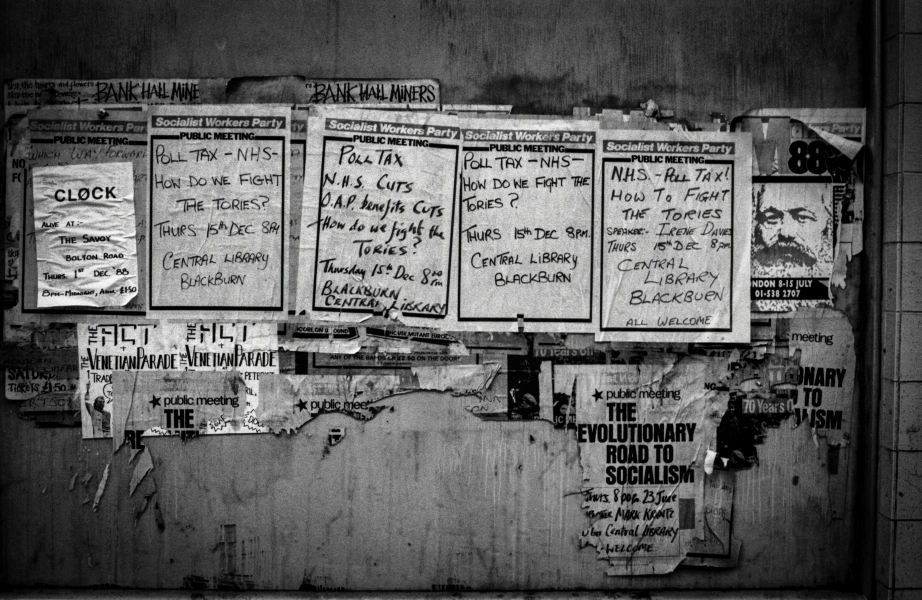 BANK HALL MINE
BANK HALL MINERS
Socialist Workers Party
PUBLIC MEETING
WHICH WAY FORWARD
CLOCK
ALIVE AT :-
THE SAVOY
BOLTON ROAD
THURS 1ST DEC '88
8PM - MIDNIGHT, ADM. £1.50
Socialist Workers Party
PUBLIC MEETING
POLL TAX - NHS -
HOW DO WE FIGHT
THE TORIES?
THURS 15th DEC 8PM
CENTRAL LIBRARY
BLACKBURN
Socialist Workers Party
PUBLIC MEETING
POLL TAX
N.H.S. CUTS
O.A.P. benefits CUTS
How do we fight the
TORIES?
Thursday 15th Dec 8
BLACKBURN
CENTRAL LIBRARY
Socialist Workers Party
PUBLIC MEETING
POLL TAX - NHS -
HOW DO WE FIGHT THE
TORIES?
THURS 15th DEC 8PM.
CENTRAL LIBRARY
BLACKBURN
Socialist Workers Party
PUBLIC MEETING
N.H.S. - POLL TAX!
HOW TO FIGHT
THE TORIES
SPEAKER:- IRENE DAVIES
THURS 15th DEC 8pm
CENTRAL
LIBRARY
BLACKBURN
ALL WELCOME
Party
88
NDON 8-15 JULY
01-538 2707
THE ACT
+
VENETIAN PARADE
THE ACT
+
VENETIAN PARADE
SATUR
TICKETS £1.50
ANY OF THE BANDS OR £2.50 ON THE DOOR
70 Years On
public meeting
THE
RE
public meet
public meeting
THE
EVOLUTIONARY
ROAD TO
SOCIALISM
Thurs. 8pm 23 June
MARK KRANTZ
Central LIBRARY
WELCOME
70 Years O
meeting
ONARY
TO
ISM